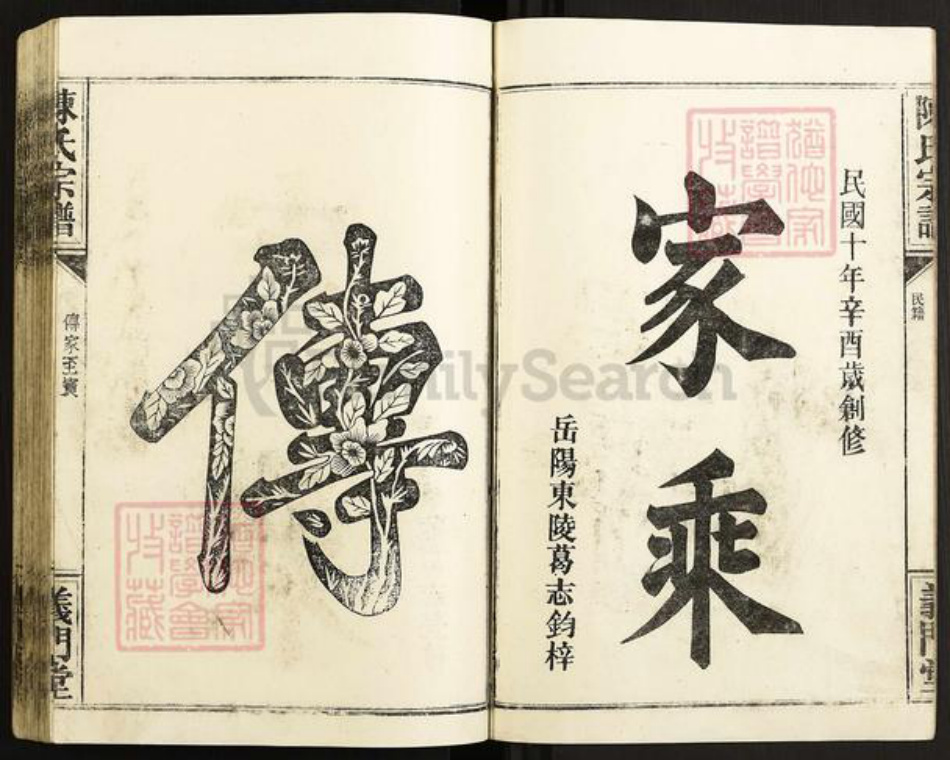 陳氏宗譜
民籍
義門堂
民國十年辛酉歲創修
家乘
岳陽東陵葛志鈞梓
傳
陳氏宗譜
傳家至寶
義門堂
譜學會
收藏
FamilySearch